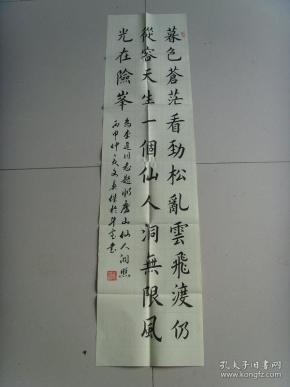 暮色蒼茫看勁松亂雲飛渡仍
從容天生一個仙人洞無限風
光在險峯
為李進同志題所攝廬山仙人洞照
丙申仲夏文
書
孔夫子旧书网